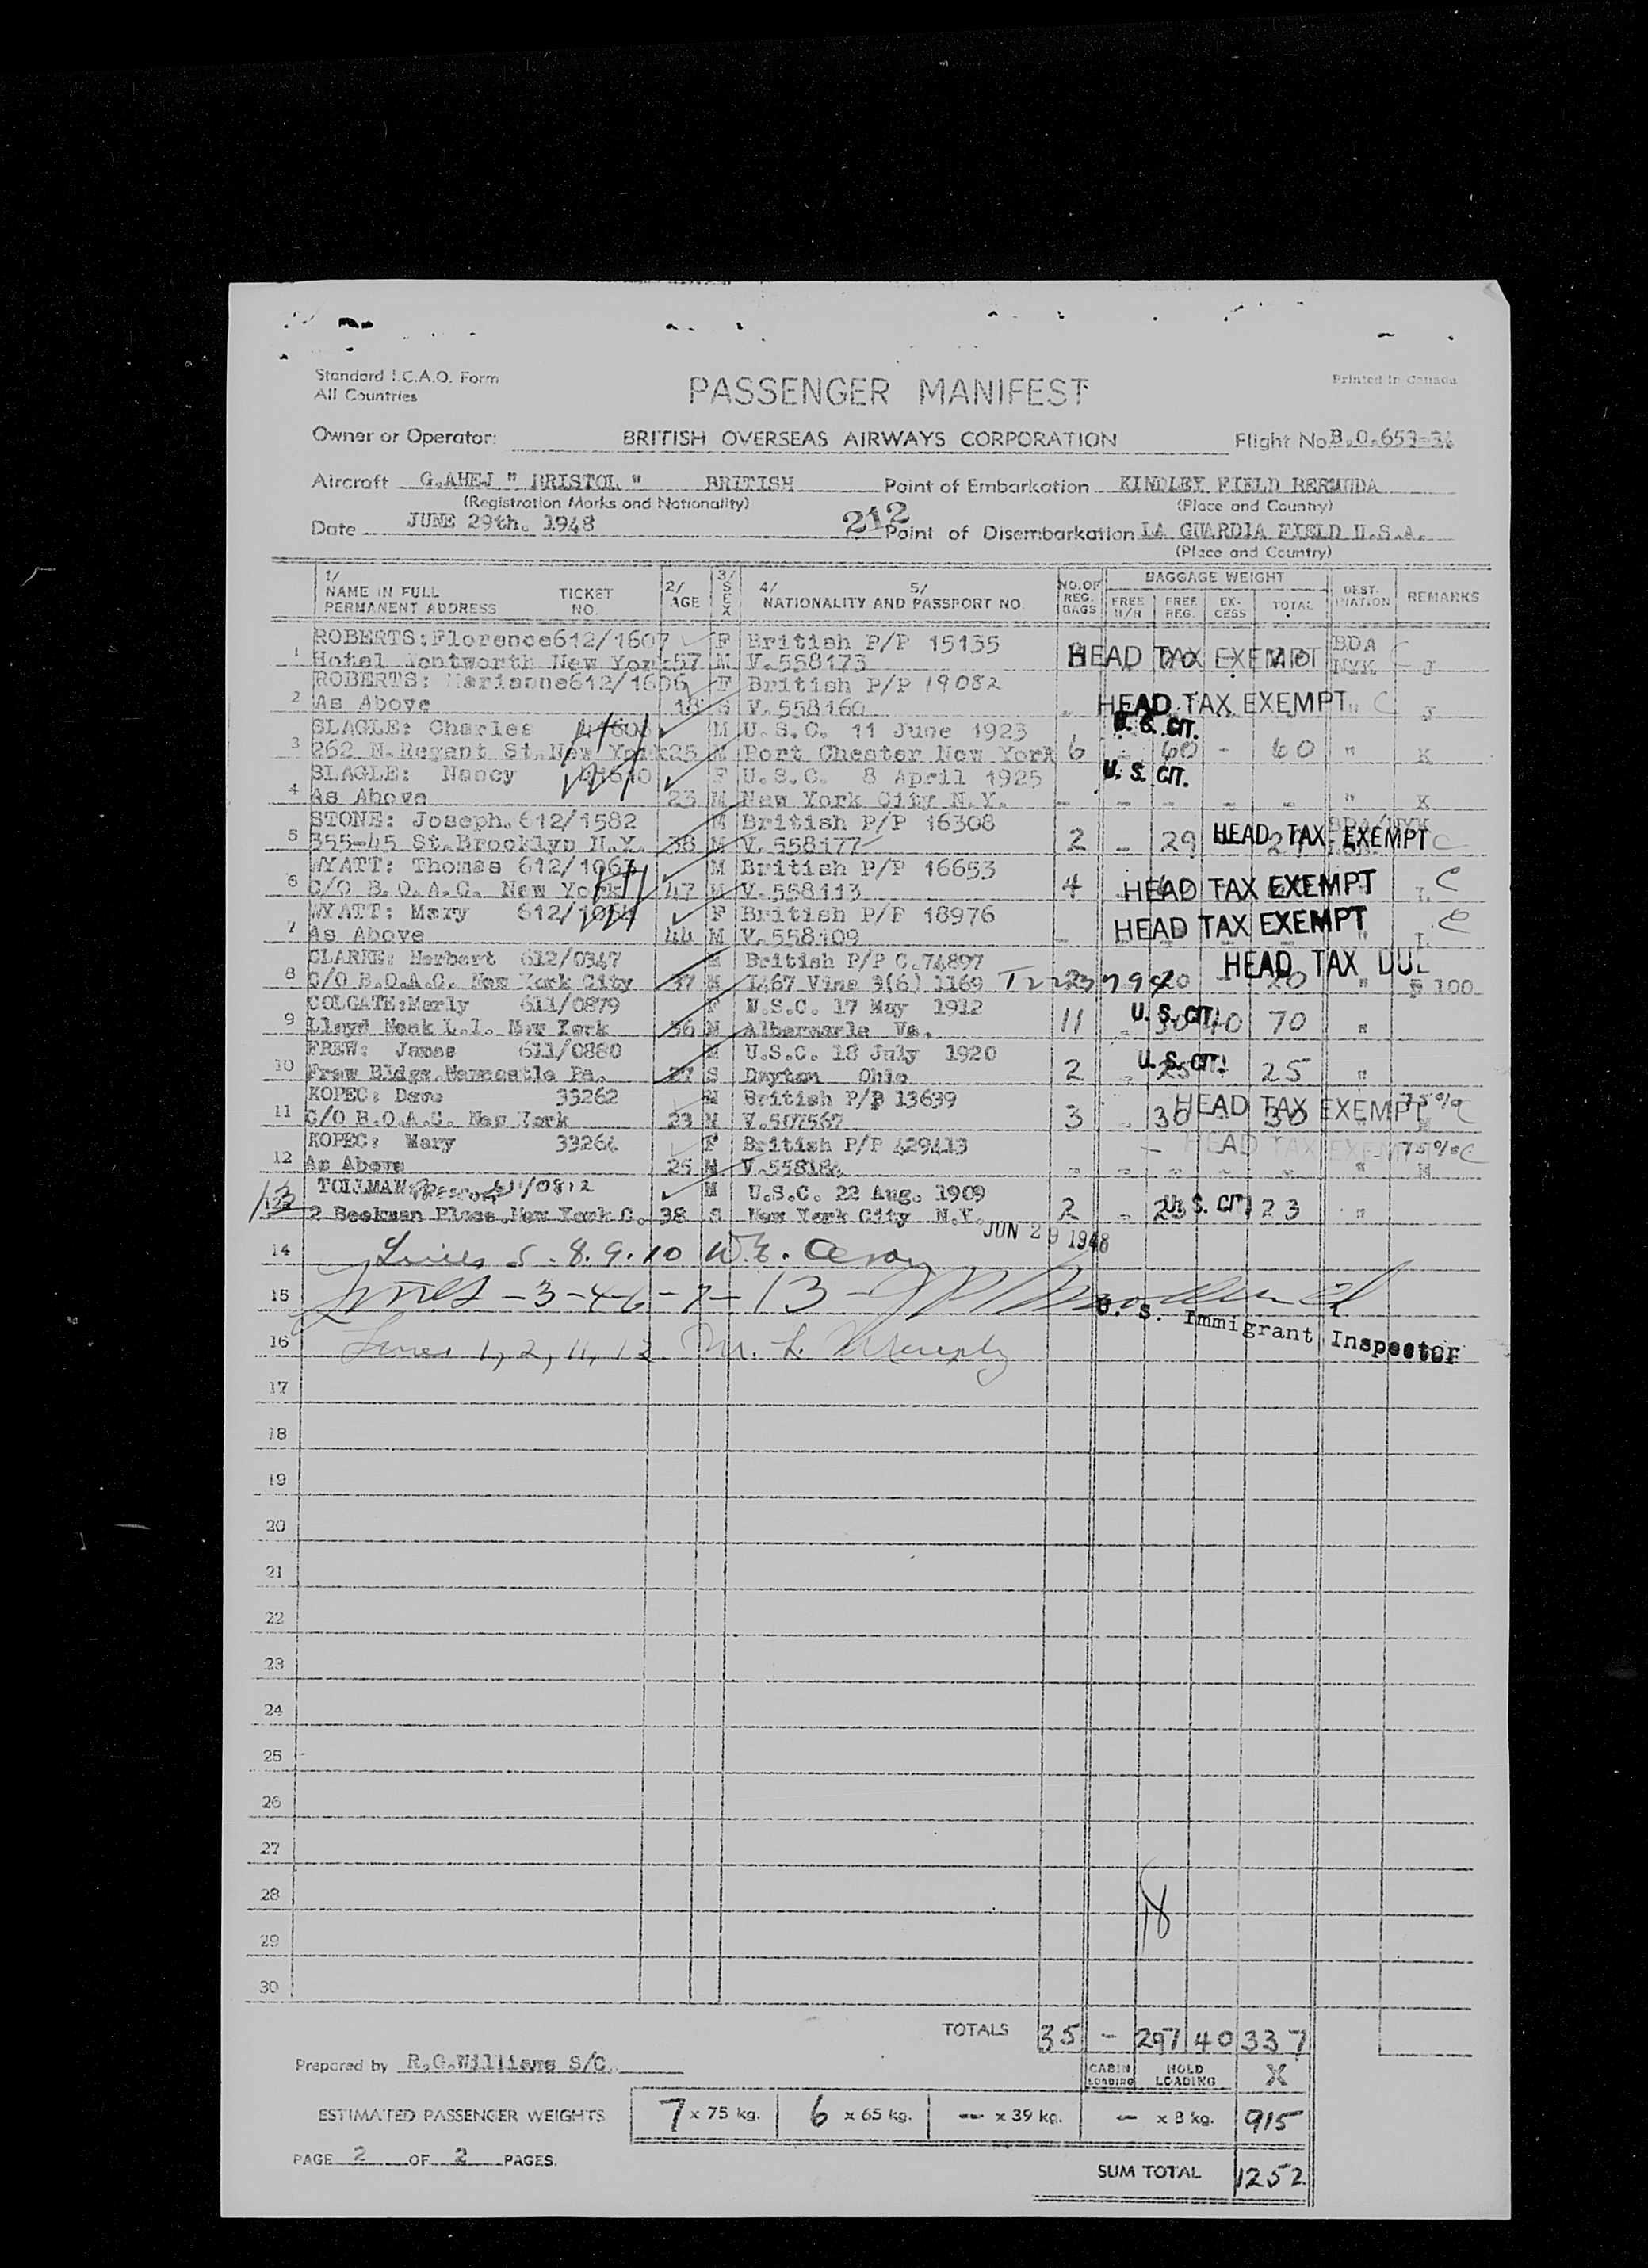 Standard I.C.A.O. Form
All Countries
PASSENGER MANIFEST
Printed in Canada
Owner or Operator: BRITISH OVERSEAS AIRWAYS CORPORATION Flight No. B.O.653-36
Aircraft G.AHEJ " BRISTOL " BRITISH Point of Embarkation KINDLEY FIELD BERMUDA
(Registration Marks and Nationality) (Place and Country)
Date JUNE 29th. 1948 212 Point of Disembarkation LA GUARDIA FIELD U.S.A.
(Place and Country)
1/ NAME IN FULL PERMANENT ADDRESS TICKET NO. 2/ AGE 3/ SEX 4/ 5/ NATIONALITY AND PASSPORT NO. NO. OF REG. BAGS BAGGAGE WEIGHT FREE REG. EXCESS TOTAL DESTINATION REMARKS
ROBERTS: Florence 612/1607 F British P/P 15135 BDA
1 Hotel Wentworth New York 57 M V.558173 HEAD TAX EXEMPT NYK J
ROBERTS: Marianne 612/1606 F British P/P 19082
2 As Above 18 S V.558160 - HEAD TAX EXEMPT " C J
SLAGLE: Charles M U.S.C. 11 June 1923 U. S. CIT.
3 262 N.Regent St.New York 25 M Port Chester New York 6 - 60 - 60 " K
SLAGLE: Nancy F U.S.C. 8 April 1925 U. S. CIT.
4 As Above 23 M New York City N.Y. - - - - - " K
STONE: Joseph. 612/1582 M British P/P 16308 BDA/NYK
5 355-45 St.Brooklyn N.Y. 38 M V.558177 2 - 29 HEAD TAX EXEMPT C
WYATT: Thomas 612/1063 M British P/P 16653
6 C/O B.O.A.C. New York 47 M V.558113 4 HEAD TAX EXEMPT L C
WYATT: Mary 612/1064 F British P/P 18976
7 As Above 44 M V.558109 - HEAD TAX EXEMPT " L C
CLARKE: Herbert 612/0347 M British P/P C.74897 HEAD TAX DUE
8 C/O B.O.A.C. New York City 37 M 1467 Visa 3(6) 1169 20 - 20 " 100
COLGATE: Merly 611/0879 F U.S.C. 17 May 1912 U. S. CIT.
9 Lloyd Neck L.I. New York 36 M Albermarle Va. 11 - 30 40 70 "
FREW: James 611/0880 M U.S.C. 18 July 1920 U. S. CIT.
10 Frew Bldgs.Newcastle Pa. 27 S Dayton Ohio 2 - 25 25 "
KOPEC: Dave 33262 M British P/P 13639 75%
11 C/O B.O.A.C. New York 23 M V.507567 3 - 30 HEAD TAX EXEMPT 30 " M C
KOPEC: Mary 33264 F British P/P 429413 HEAD TAX EXEMPT 75% C
12 As Above 25 M V.558184 - - - - - " M
13 TOLLMAN: 611/0812 M U.S.C. 22 Aug. 1909
2 Beekman Place.New York C. 38 S New York City N.Y. 2 - 23 U. S. CIT. 23 "
JUN 29 1948
14 Lines 5. 8. 9. 10 W.E.
15 Lines -3-4-6-7-13-
U. S. Immigrant Inspector
16 Lines 1, 2, 11, 12 M. L. Murphy
17
18
19
20
21
22
23
24
25
26
27
28
29
30
18
TOTALS 35 - 297 40 337
Prepared by R.G.Williams S/C. CABIN LOADING HOLD LOADING X
ESTIMATED PASSENGER WEIGHTS 7 x 75 kg. 6 x 65 kg. - x 39 kg. - x 8 kg. 915
PAGE 2 OF 2 PAGES.
SUM TOTAL 1252